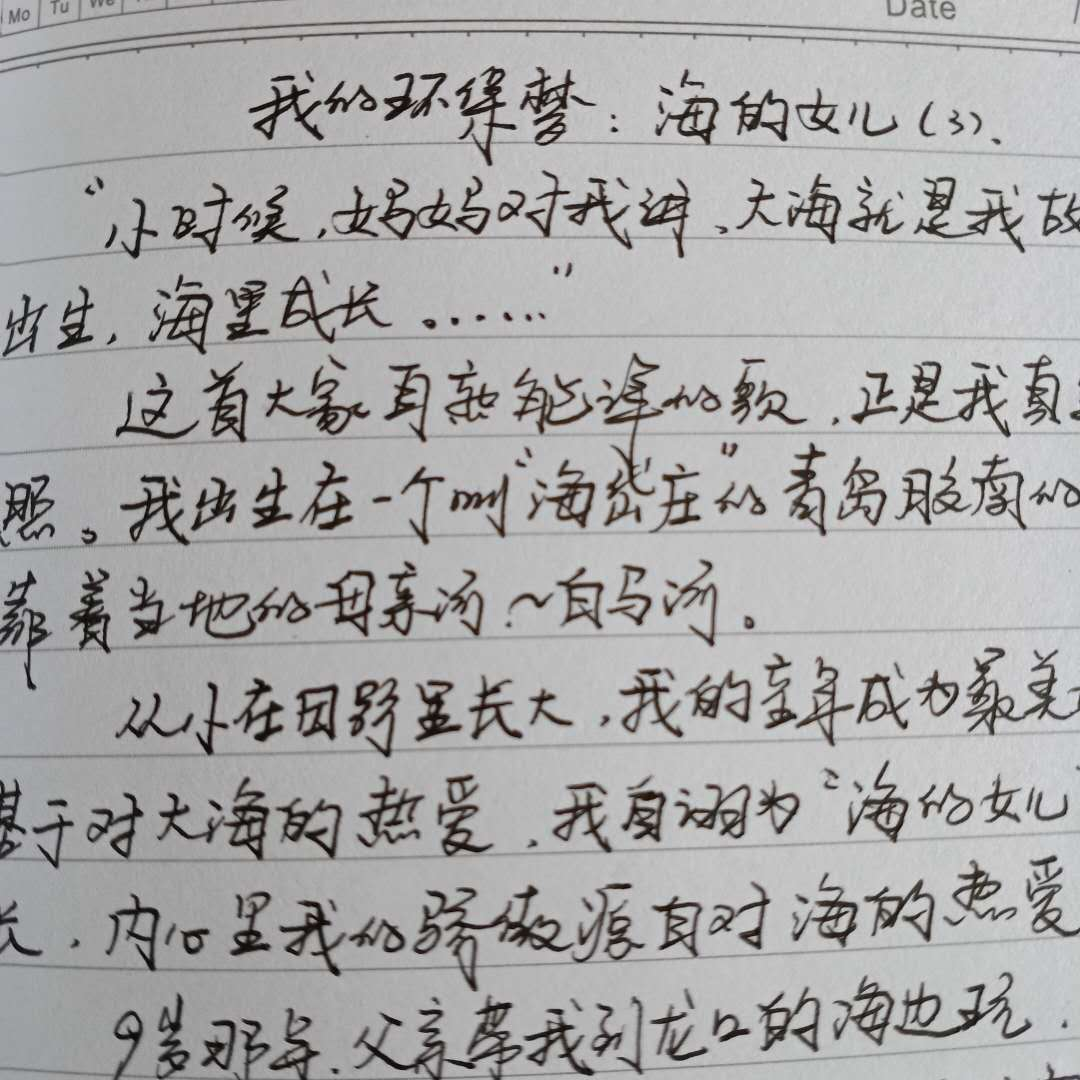 Mo Tu We Date
我的环保梦：海的女儿（3）、
“小时候，妈妈对我讲、大海就是我故
出生，海里成长。……”
这首大家耳熟能详的歌，正是我真
照。我出生在一个叫“海崖庄”的青岛胶南的
着当地的母亲河～白马河。
从小在田野里长大，我的童年成为最美
基于对大海的热爱，我自诩为“海的女儿”
长，内心里我的骄傲源自对海的热爱
9岁那年，父亲带我到龙口的海边玩，